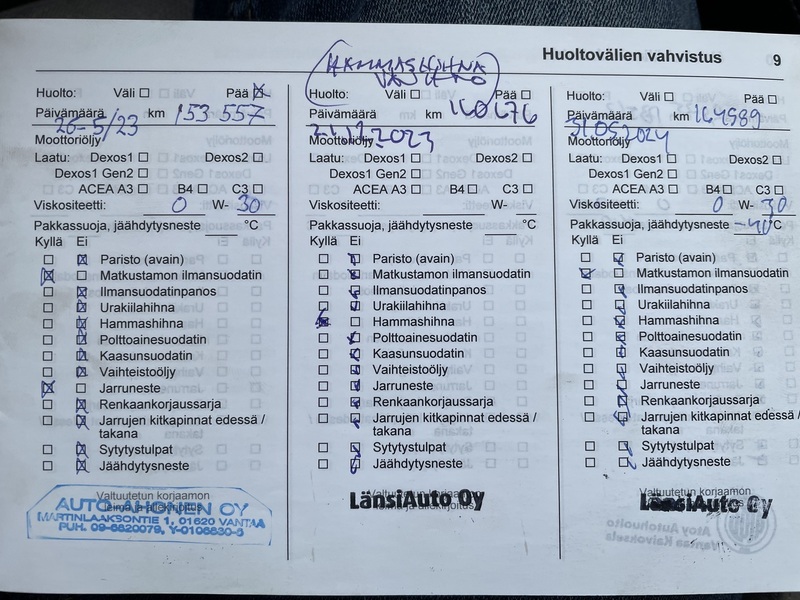 Huoltovälien vahvistus 9
Huolto: Väli ☐ Pää ☒
Päivämäärä 26-5/23 km 153 557
Moottoriöljy
Laatu: Dexos1 ☐ Dexos2 ☐
Dexos1 Gen2 ☐
ACEA A3 ☐ B4 ☐ C3 ☐
Viskositeetti: 0 W- 30
Pakkassuoja, jäähdytysneste °C
Kyllä Ei
☐ ☒ Paristo (avain)
☒ ☐ Matkustamon ilmansuodatin
☐ ☒ Ilmansuodatinpanos
☐ ☒ Urakiilahihna
☐ ☒ Hammashihna
☐ ☒ Polttoainesuodatin
☐ ☒ Kaasunsuodatin
☐ ☒ Vaihteistoöljy
☒ ☐ Jarruneste
☐ ☒ Renkaankorjaussarja
☐ ☒ Jarrujen kitkapinnat edessä /
takana
☐ ☒ Sytytystulpat
☐ ☒ Jäähdytysneste
Valtuutetun korjaamon
leima ja allekirjoitus
AUTO-AHONEN OY
MARTINLAAKSONTIE 1, 01620 VANTAA
PUH. 09-6620079, Y-0106830-5
HAMMASHIHNA
Huolto: Väli ☐ Pää ☐
Päivämäärä 21.12.2023 km 160676
Moottoriöljy
Laatu: Dexos1 ☐ Dexos2 ☐
Dexos1 Gen2 ☐
ACEA A3 ☐ B4 ☐ C3 ☐
Viskositeetti: W-
Pakkassuoja, jäähdytysneste °C
Kyllä Ei
☐ ☑ Paristo (avain)
☐ ☑ Matkustamon ilmansuodatin
☐ ☑ Ilmansuodatinpanos
☐ ☑ Urakiilahihna
☒ ☐ Hammashihna
☐ ☑ Polttoainesuodatin
☐ ☑ Kaasunsuodatin
☐ ☑ Vaihteistoöljy
☐ ☑ Jarruneste
☐ ☑ Renkaankorjaussarja
☐ ☑ Jarrujen kitkapinnat edessä /
takana
☐ ☑ Sytytystulpat
☐ ☑ Jäähdytysneste
Valtuutetun korjaamon
leima ja allekirjoitus
LänsiAuto Oy
Huolto: Väli ☐ Pää ☐
Päivämäärä 31.05.2024 km 164989
Moottoriöljy
Laatu: Dexos1 ☐ Dexos2 ☐
Dexos1 Gen2 ☐
ACEA A3 ☐ B4 ☐ C3 ☐
Viskositeetti: 0 W- 30
Pakkassuoja, jäähdytysneste -40 °C
Kyllä Ei
☐ ☑ Paristo (avain)
☑ ☐ Matkustamon ilmansuodatin
☐ ☑ Ilmansuodatinpanos
☐ ☑ Urakiilahihna
☐ ☑ Hammashihna
☐ ☑ Polttoainesuodatin
☐ ☑ Kaasunsuodatin
☐ ☑ Vaihteistoöljy
☐ ☑ Jarruneste
☐ ☑ Renkaankorjaussarja
☐ ☑ Jarrujen kitkapinnat edessä /
takana
☐ ☑ Sytytystulpat
☐ ☑ Jäähdytysneste
Valtuutetun korjaamon
LänsiAuto Oy